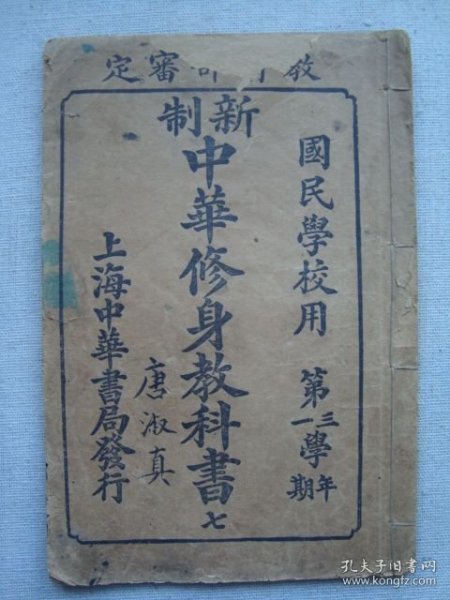 教審定
國民學校用 第三一學年期
新制
中華修身教科書 七
唐淑真
上海中華書局發行
孔夫子旧书网
www.kongfz.com